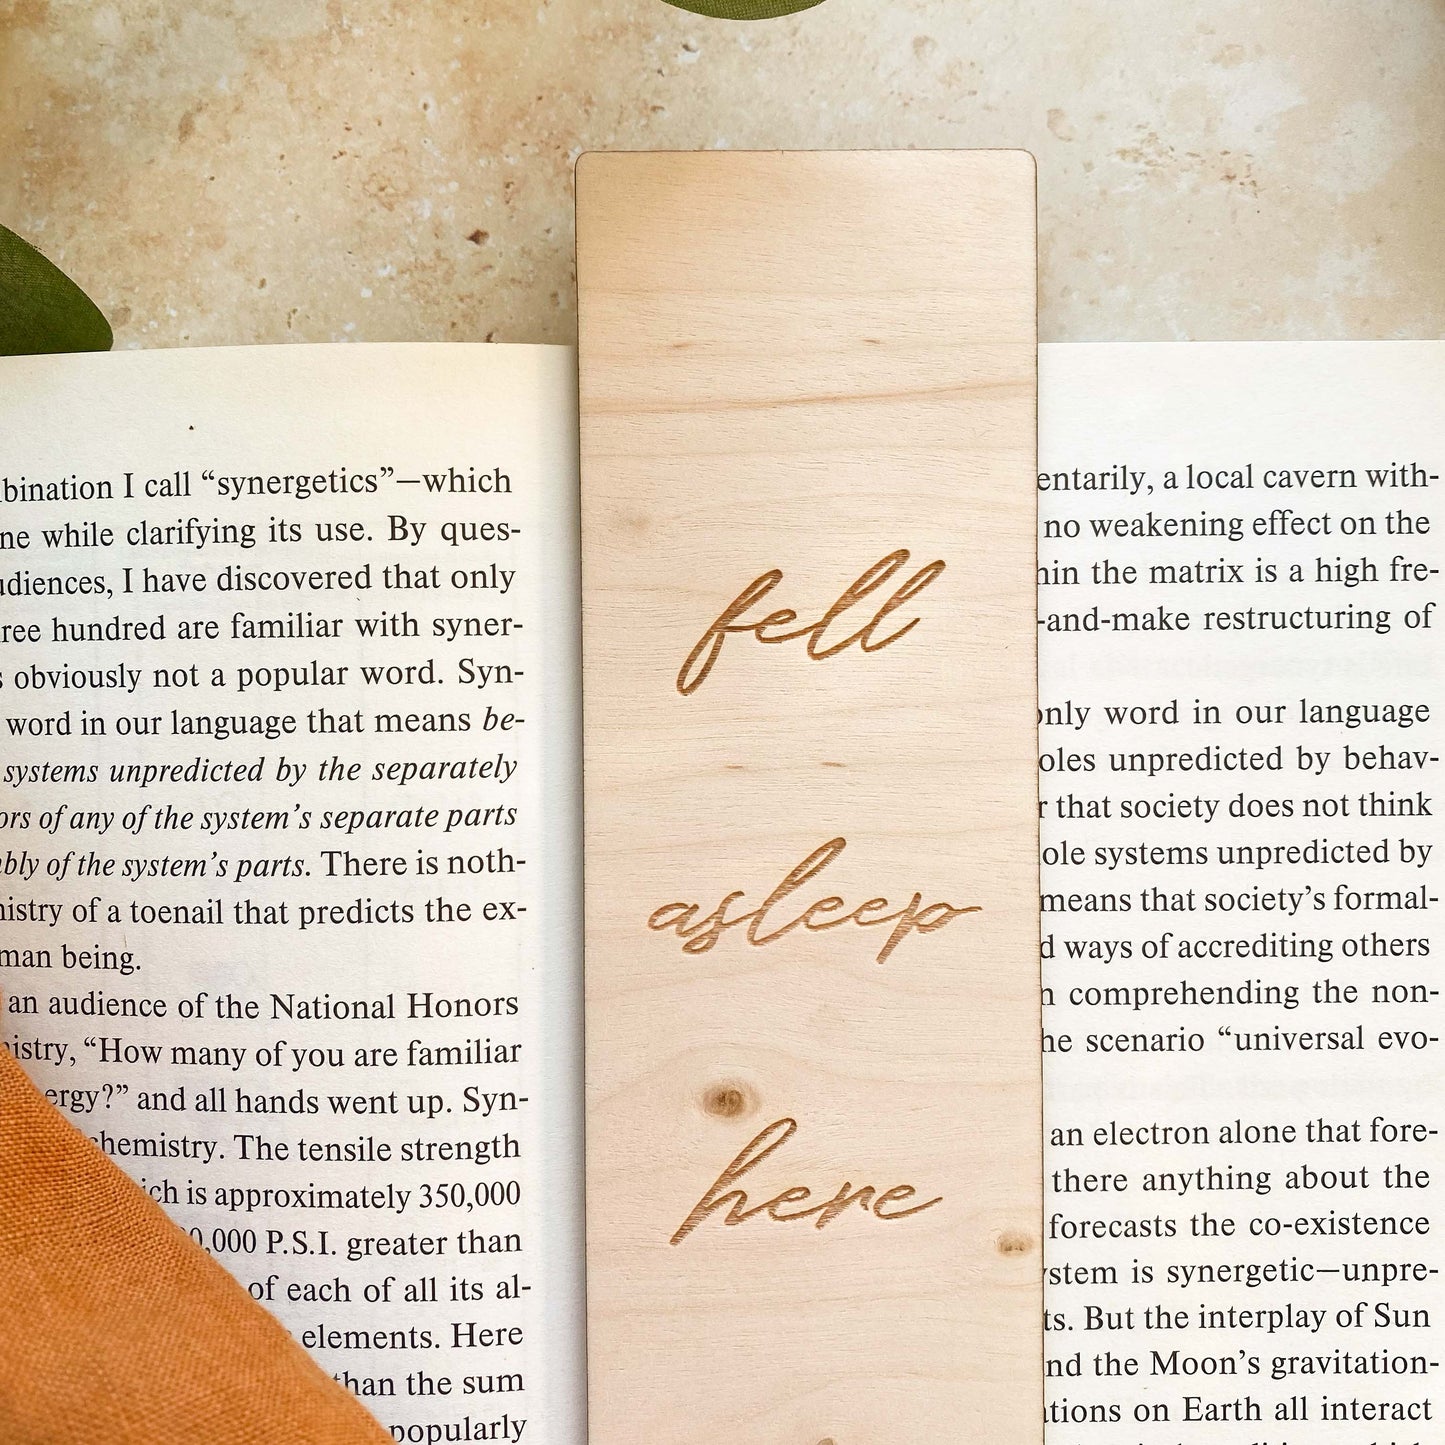 bination I call “synergetics”—which
ne while clarifying its use. By ques-
udiences, I have discovered that only
ree hundred are familiar with syner-
s obviously not a popular word. Syn-
word in our language that means be-
systems unpredicted by the separately
ors of any of the system’s separate parts
bly of the system’s parts. There is noth-
nistry of a toenail that predicts the ex-
man being.
an audience of the National Honors
istry, “How many of you are familiar
ergy?” and all hands went up. Syn-
chemistry. The tensile strength
ich is approximately 350,000
0,000 P.S.I. greater than
of each of all its al-
elements. Here
than the sum
popularly
fell
asleep
here
entarily, a local cavern with-
no weakening effect on the
hin the matrix is a high fre-
-and-make restructuring of
only word in our language
oles unpredicted by behav-
r that society does not think
ole systems unpredicted by
means that society’s formal-
d ways of accrediting others
n comprehending the non-
he scenario “universal evo-
an electron alone that fore-
there anything about the
forecasts the co-existence
ystem is synergetic—unpre-
ts. But the interplay of Sun
nd the Moon’s gravitation-
ations on Earth all interact